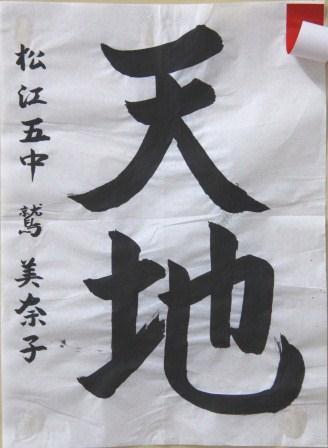 天地
松江五中 鷲 美奈子